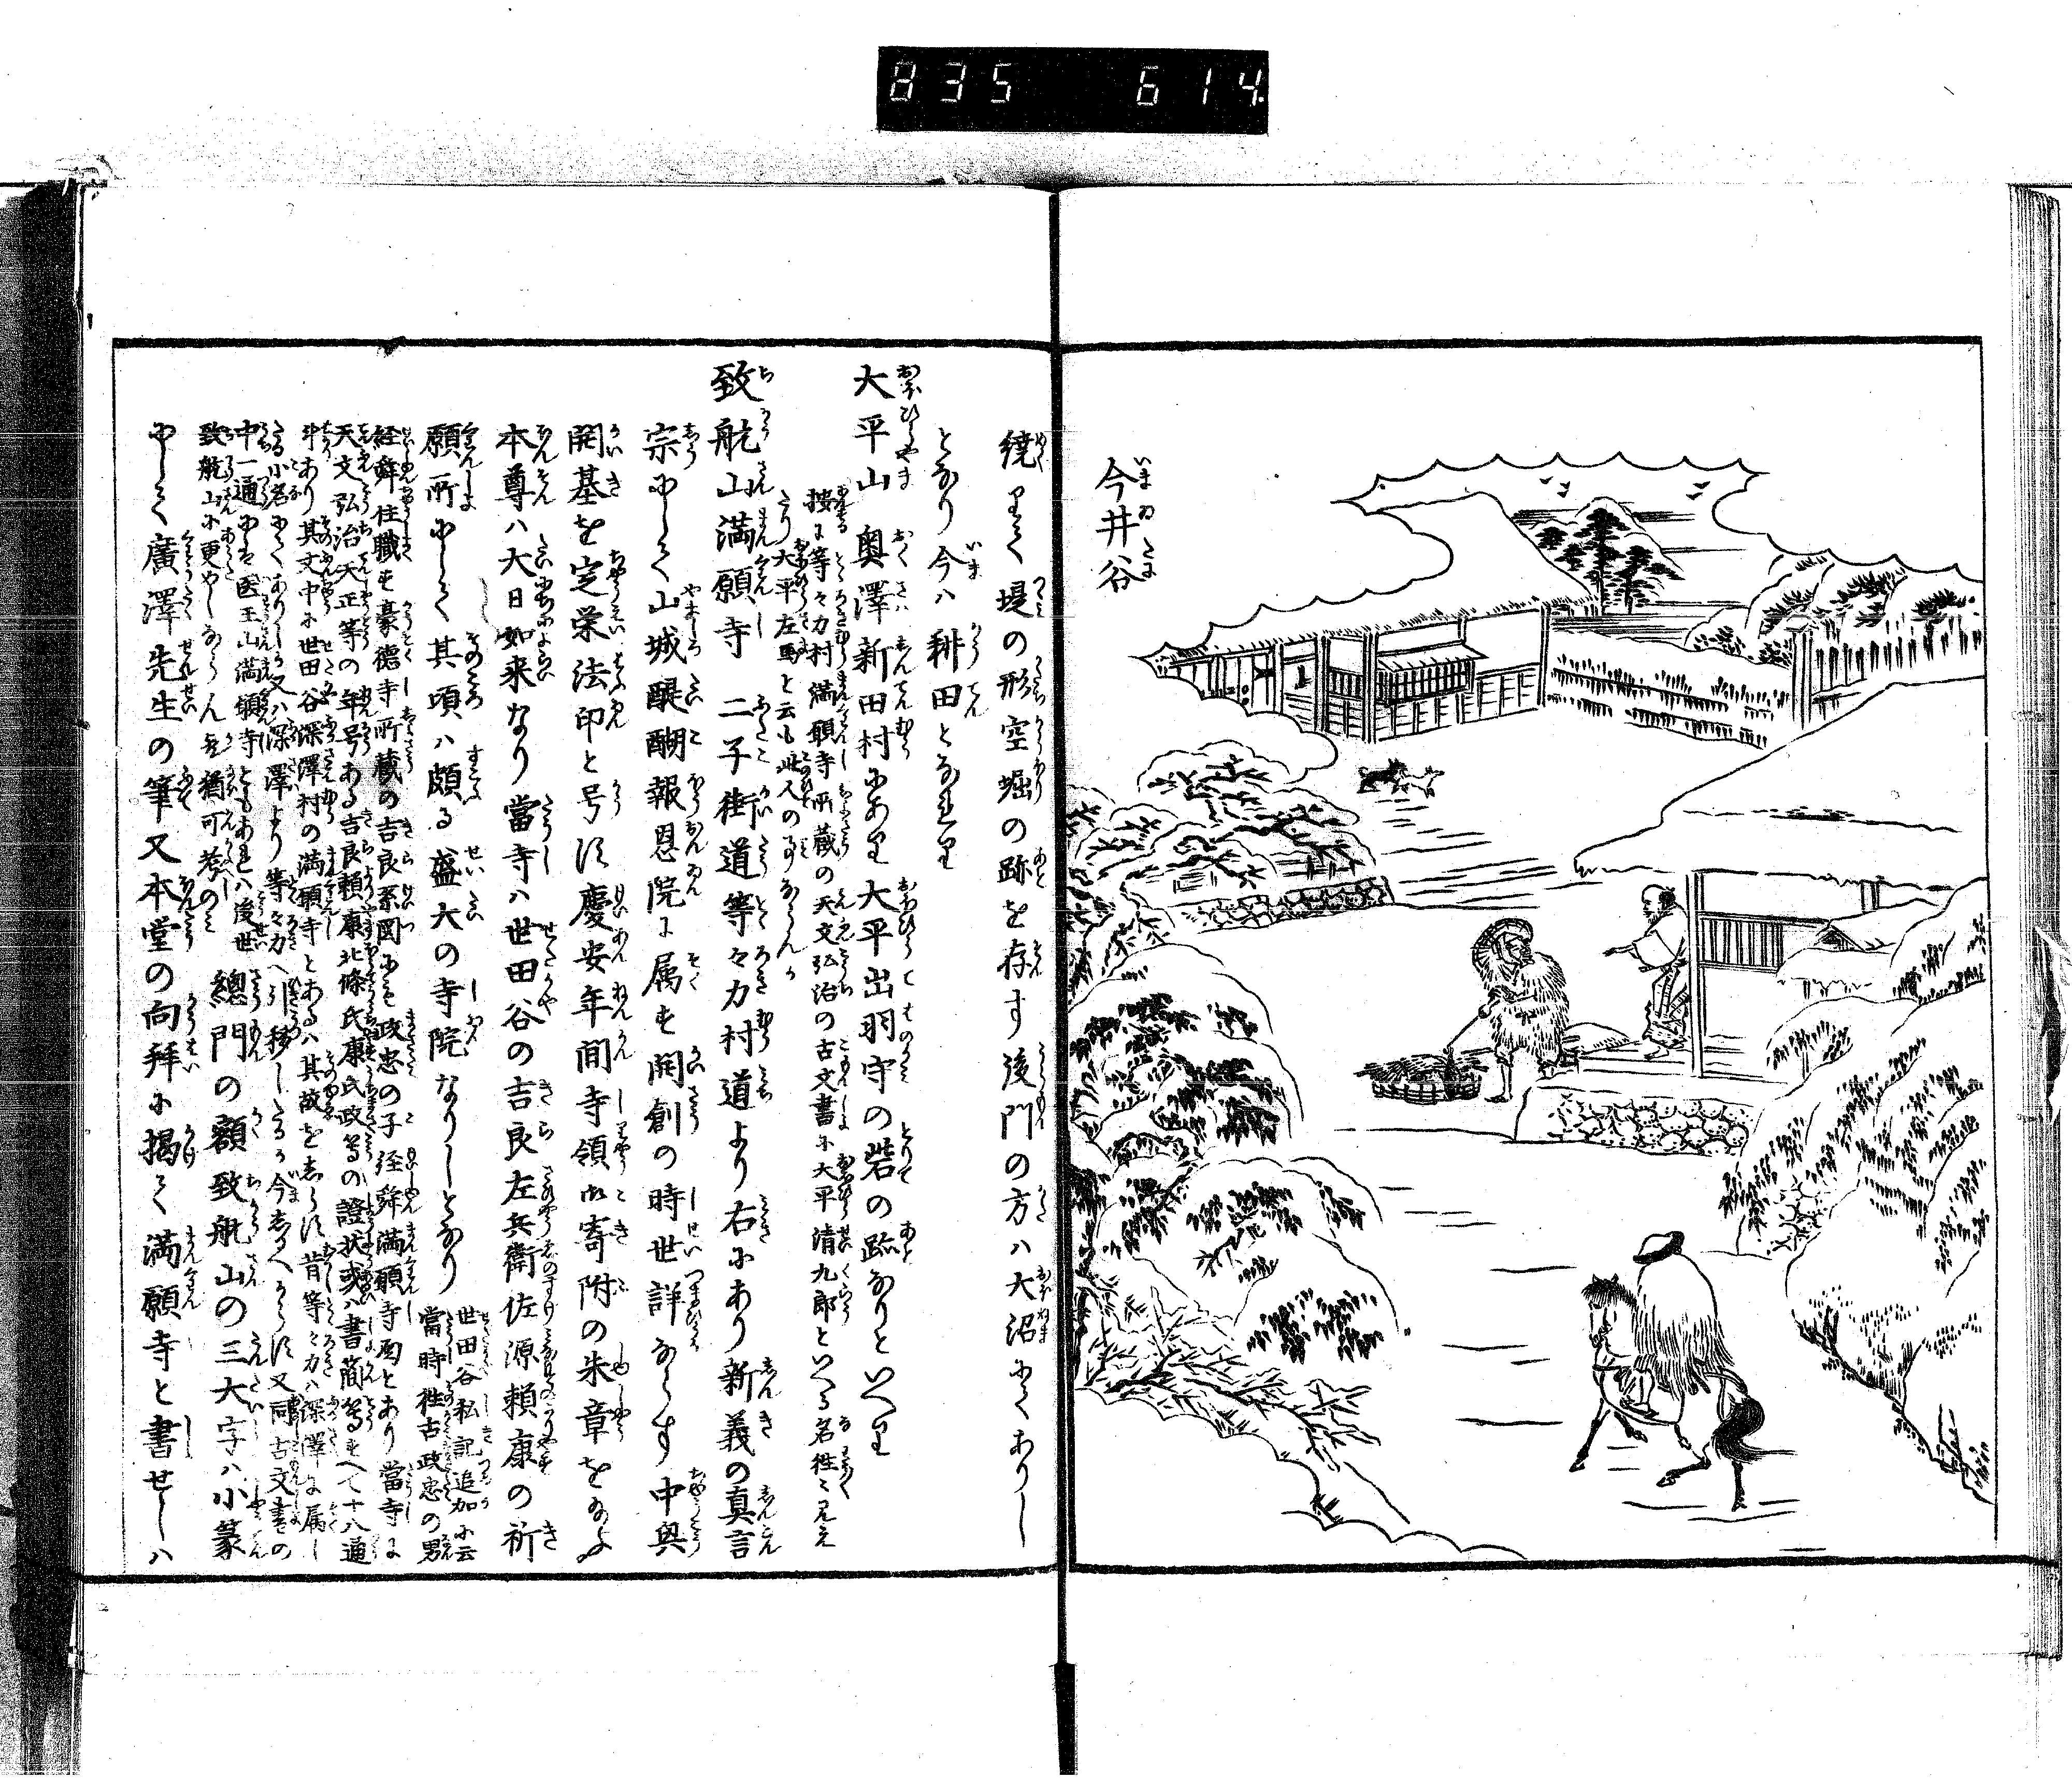 835 614
今井谷
繞りて堤の形空堀の跡を存す後門の方ハ大沼にてありし
となり今ハ耕田となれり
大平山 奥澤新田村にあり大平出羽守の砦の跡なりといへり
按に等々力村満願寺所蔵の天文弘治の古文書に大平清九郎といへる名往々見え
たり大平左馬と云も此人の事ならんか
致航山満願寺 二子街道等々力村道より右にあり新義の真言
宗にして山城醍醐報恩院に属す開創の時世詳ならす中興
開基を定栄法印と号す慶安年間寺領御寄附の朱章をたまふ
本尊ハ大日如来なり當寺ハ世田谷の吉良左兵衛佐源頼康の祈
願所にして其頃ハ頗る盛大の寺院なりしとなり
世田谷私記追加に云
當時往古政忠の男
経舜住職す豪徳寺所蔵の吉良系図にも政忠の子経舜満願寺酉とあり當寺に
天文弘治天正等の年号ある吉良頼康北條氏康氏政等の證状或ハ書簡等すへて十八通
斗あり其文中に世田谷深澤村の満願寺とあるハ其故をしらす昔等々力ハ深澤に属し
たる小名にてありしか又ハ深澤より等々力へ引移したるか今しるへからす又同古文書の
中一通にも医王山満願寺ともあれハ後世
致航山に更めしならん歟猶可考のミ
總門の額致航山の三大字ハ小篆
にして廣澤先生の筆又本堂の向拝に掲て満願寺と書せしハ